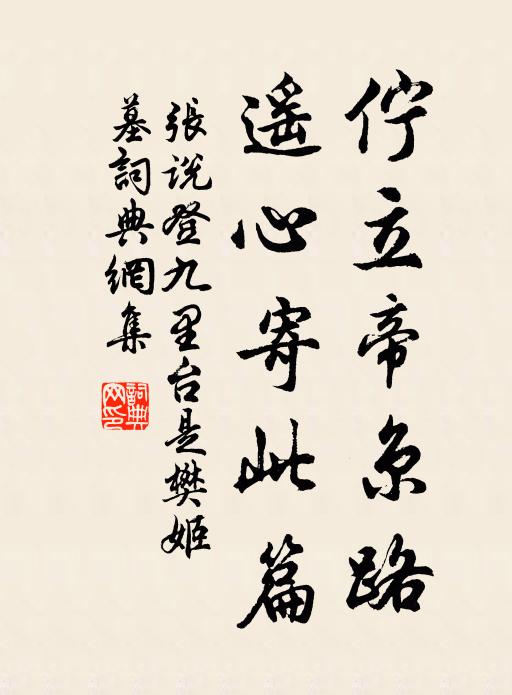 佇立帝京路
遥心寄此篇
張説登九里台是樊姬
墓詞典網集
詞典網印